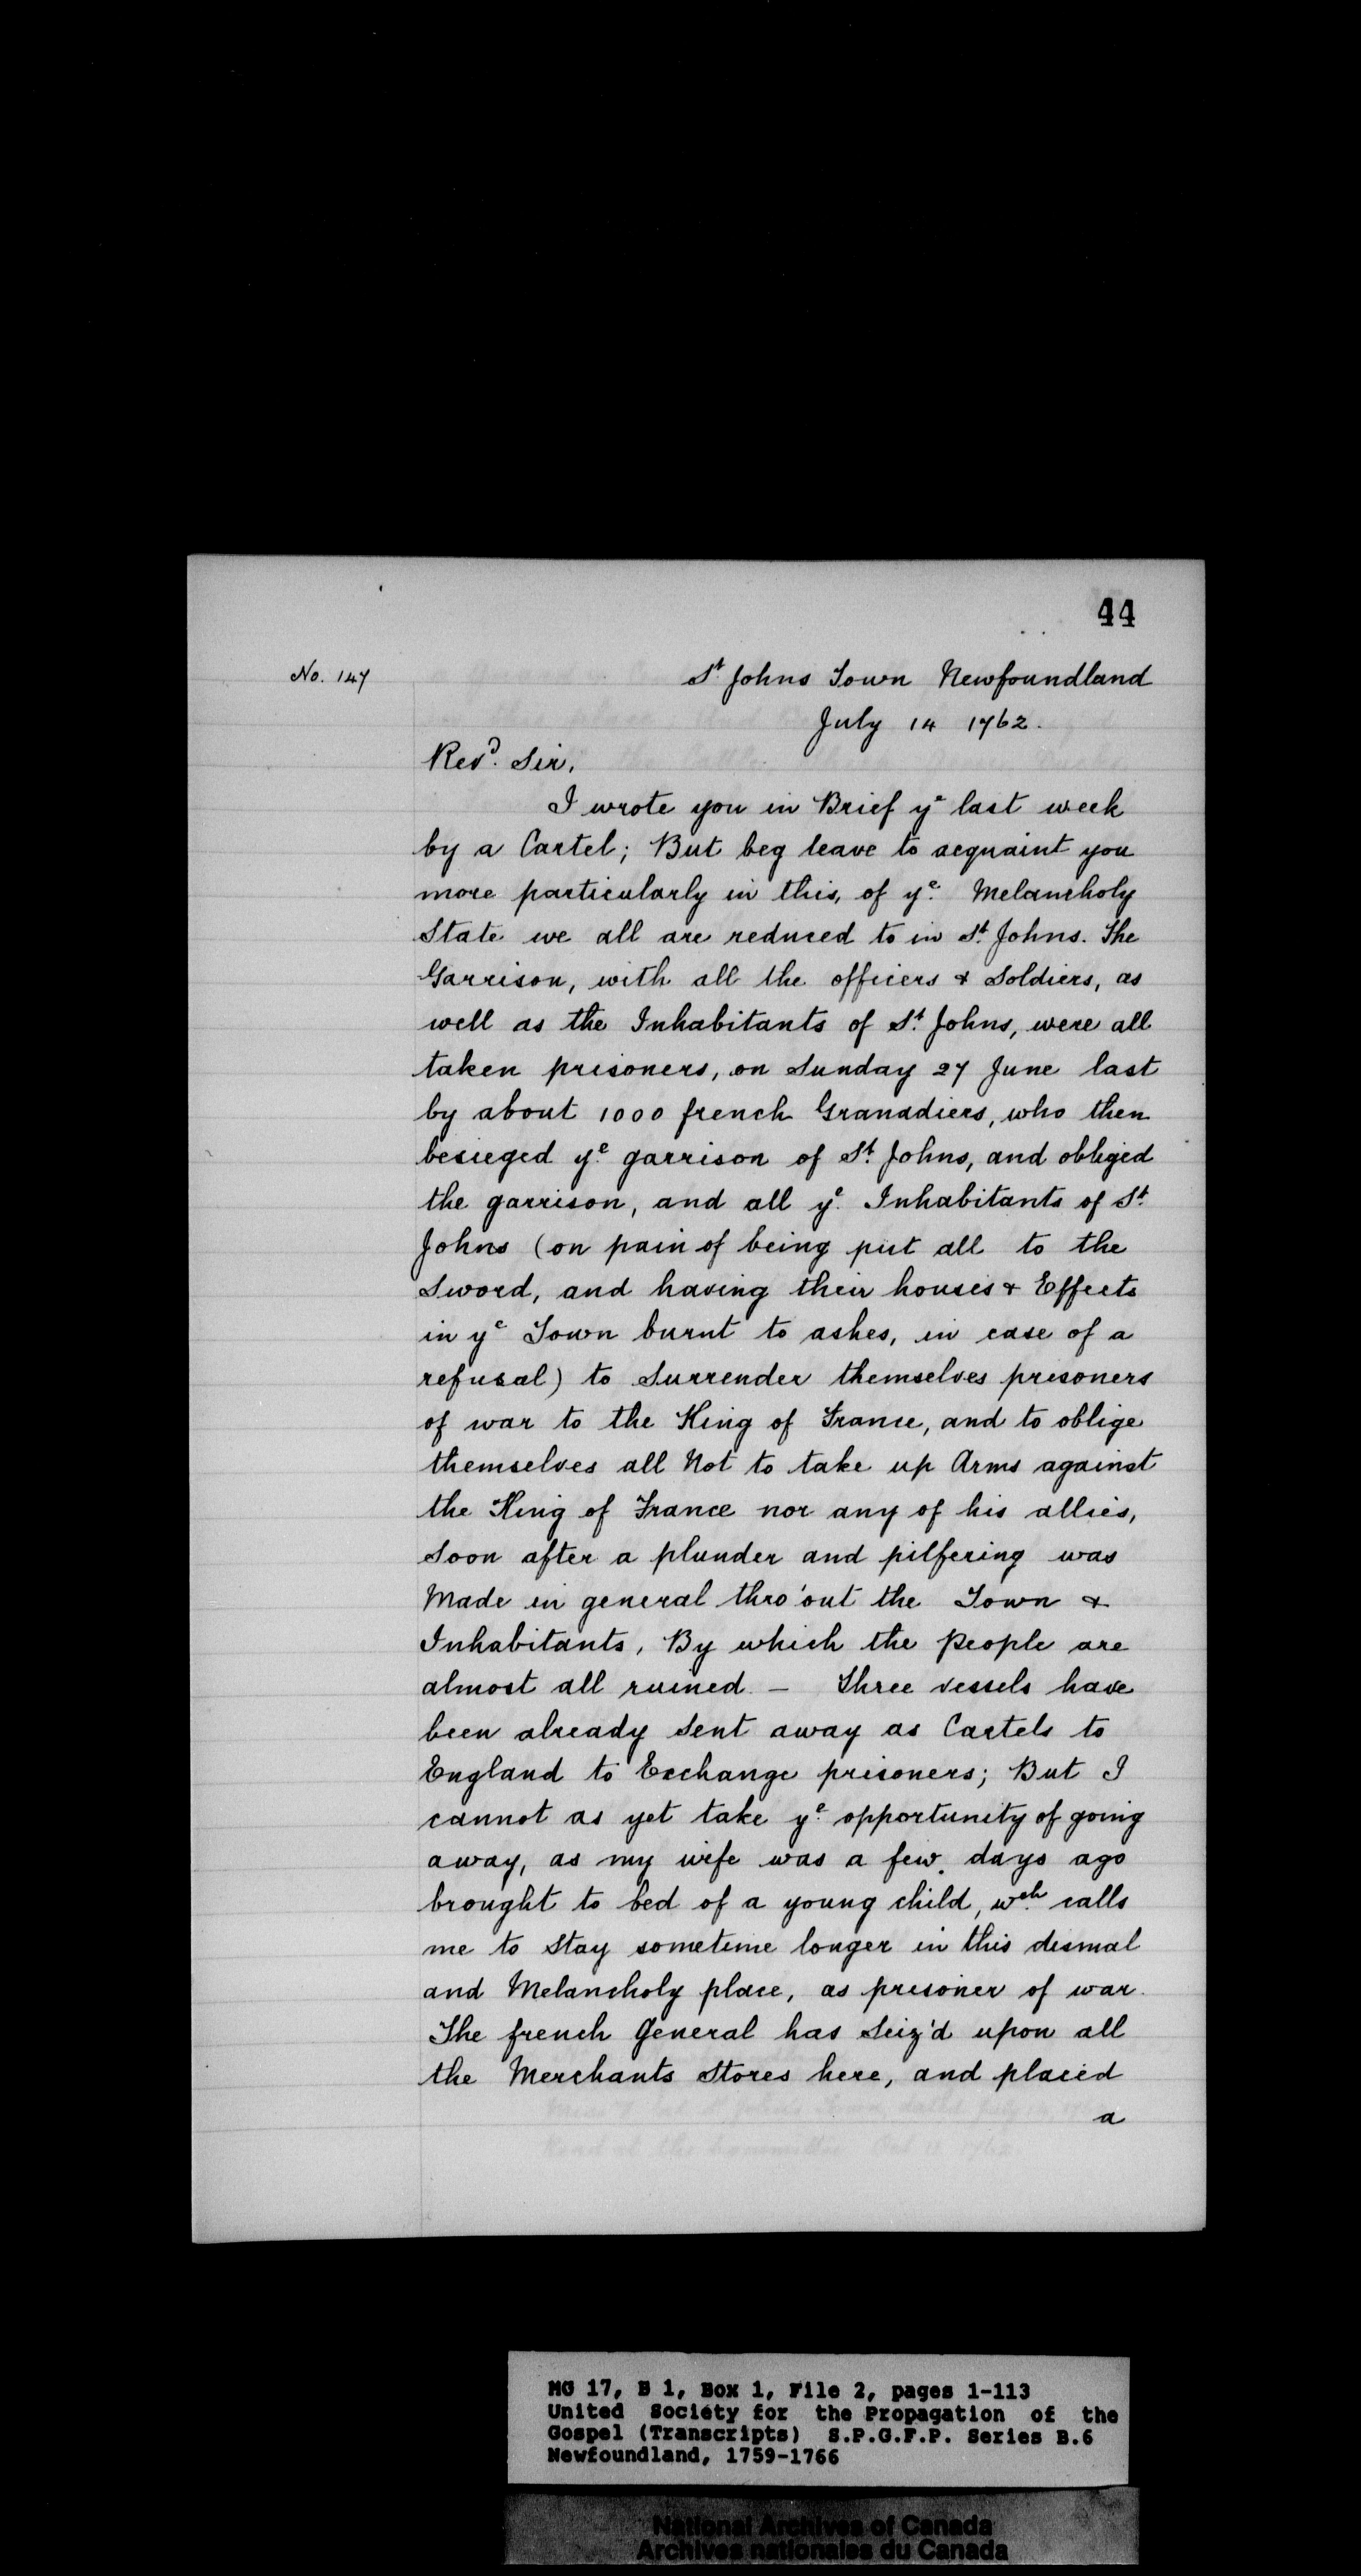 44
No. 147
St Johns Town Newfoundland
July 14 1762.
Revd. Sir,
I wrote you in Brief ye last week
by a Cartel; But beg leave to acquaint you
more particularly in this, of ye. Melancholy
State we all are reduced to in St. Johns. The
Garrison, with all the officers & Soldiers, as
well as the Inhabitants of St. Johns, were all
taken prisoners, on Sunday 27 June last
by about 1000 french Granadiers, who then
besieged ye. garrison of St. Johns, and obliged
the garrison, and all ye. Inhabitants of St.
Johns (on pain of being put all to the
Sword, and having their houses & Effects
in ye Town burnt to ashes, in case of a
refusal) to Surrender themselves prisoners
of war to the King of France, and to oblige
themselves all Not to take up Arms against
the King of France nor any of his allies,
Soon after a plunder and pilfering was
Made in general thro'out the Town &
Inhabitants, By which the People are
almost all ruined. – Three vessels have
been already Sent away as Cartels to
England to Exchange prisoners; But I
cannot as yet take ye. opportunity of going
away, as my wife was a few days ago
brought to bed of a young child, wch. calls
me to Stay sometime longer in this dismal
and Melancholy place, as prisoner of war.
The french General has Seiz'd upon all
the Merchants Stores here, and placed
a
MG 17, B 1, Box 1, File 2, pages 1-113
United Society for the Propagation of the
Gospel (Transcripts) S.P.G.F.P. Series B.6
Newfoundland, 1759-1766
National Archives of Canada
Archives nationales du Canada